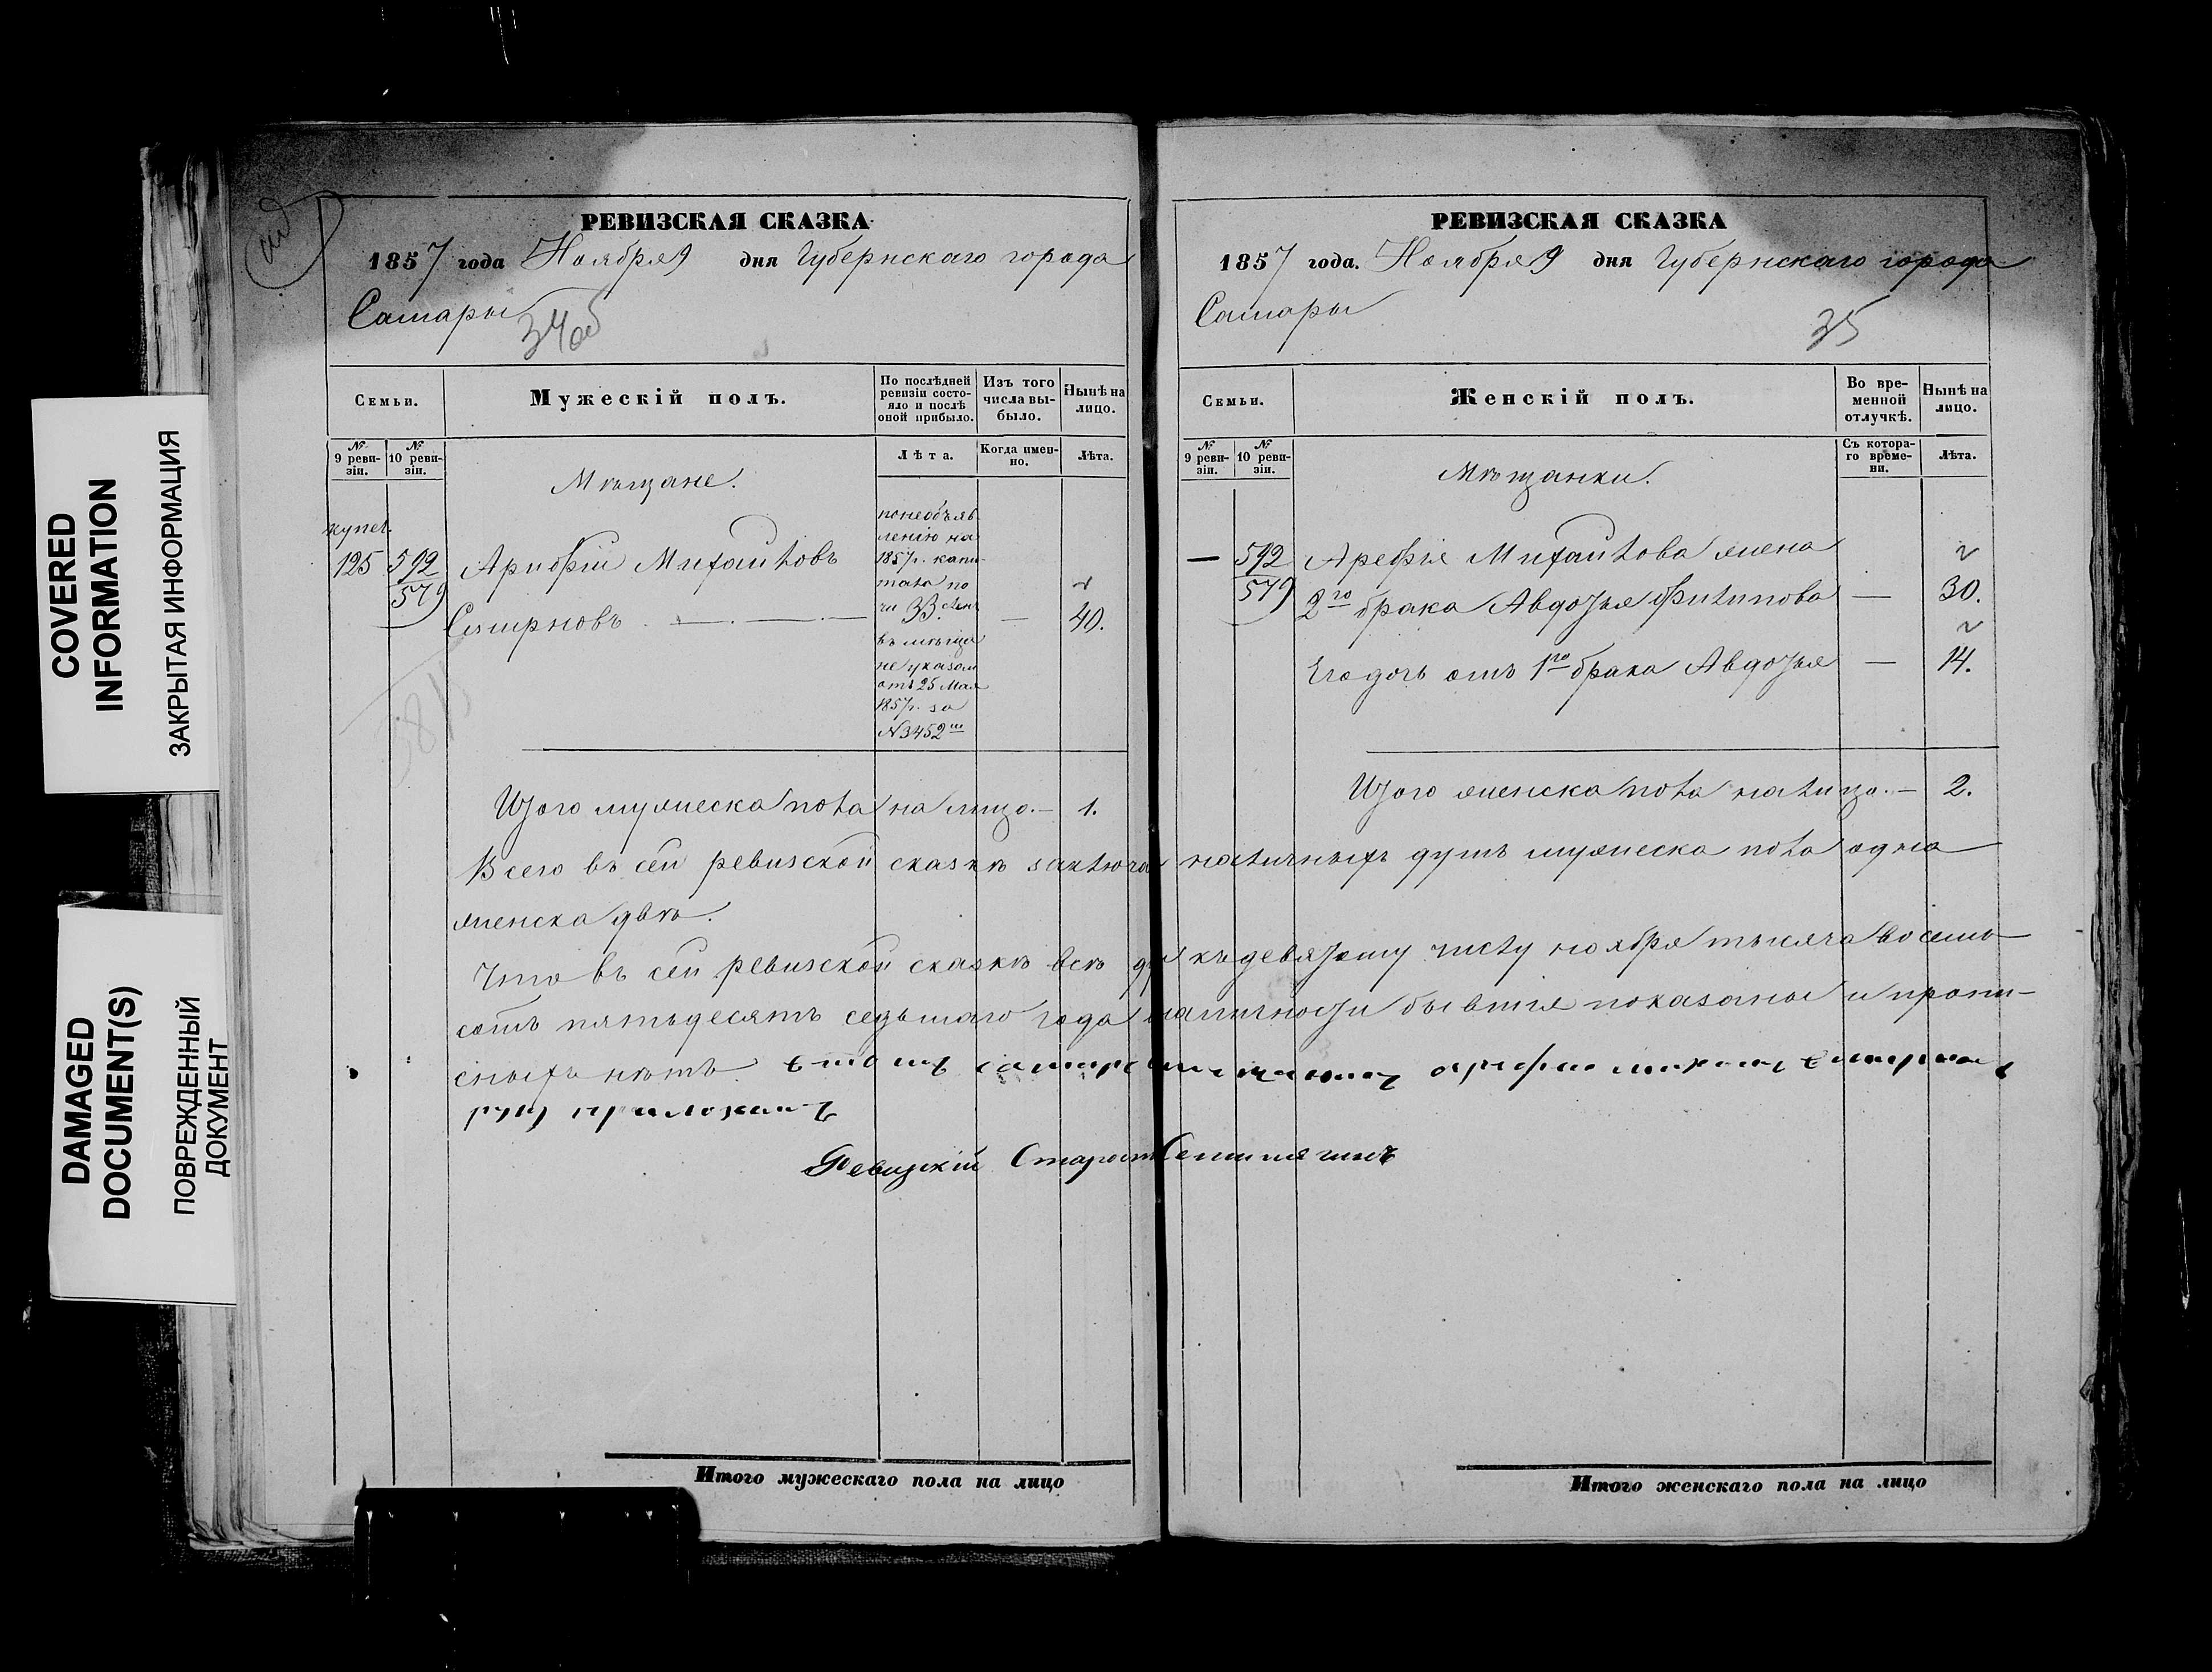 COVERED
INFORMATION
ЗАКРЫТАЯ ИНФОРМАЦИЯ
DAMAGED
DOCUMENT(S)
ПОВРЕЖДЕННЫЙ
ДОКУМЕНТ
РЕВИЗСКАЯ СКАЗКА
1857 года Ноября 9 дня Губернскаго города
Самары
34об
Семьи.
Мужескій полъ.
По послѣдней ревизіи состояло и послѣ оной прибыло.
Изъ того числа выбыло.
Нынѣ на лицо.
№ 9 ревизіи.
№ 10 ревизіи.
Лѣта.
Когда именно.
Лѣта.
Мѣщане.
купеч.
125 592 Арифій Михайловъ
579
Смирновъ — 40.
по необъяв-
лению на
1857г. капи-
тала по
33.
въ мѣща
не указом
отъ 25 Мая
1857г. за
№ 3452м
Итого мужеска пола на лицо. — 1.
РЕВИЗСКАЯ СКАЗКА
1857 года. Ноября 9 дня Губернскаго города
Самары
35
Семьи.
Женскій полъ.
Во временной отлучкѣ.
Нынѣ на лицо.
№ 9 ревизіи.
№ 10 ревизіи.
Съ котораго времени.
Лѣта.
Мѣщанки.
— 592 Арефія Михайлова жена
579 2го брака Авдотья Филипова — 30.
Его дочь отъ 1го брака Авдотья — 14.
Итого женска пола на лицо. — 2.
Всего въ сей ревизской сказкѣ заключа наличныхъ душъ мужеска пола одна
женска двѣ.
Что въ сей ревизской сказкѣ всѣ къ девятому числу ноября тысяча восемь
сотъ пятьдесятъ седьмаго года наличности бывшія показаны и пропи-
сныхъ нѣтъ
руку приложилъ
Ревизскій Старост
Итого мужескаго пола на лицо
Итого женскаго пола на лицо